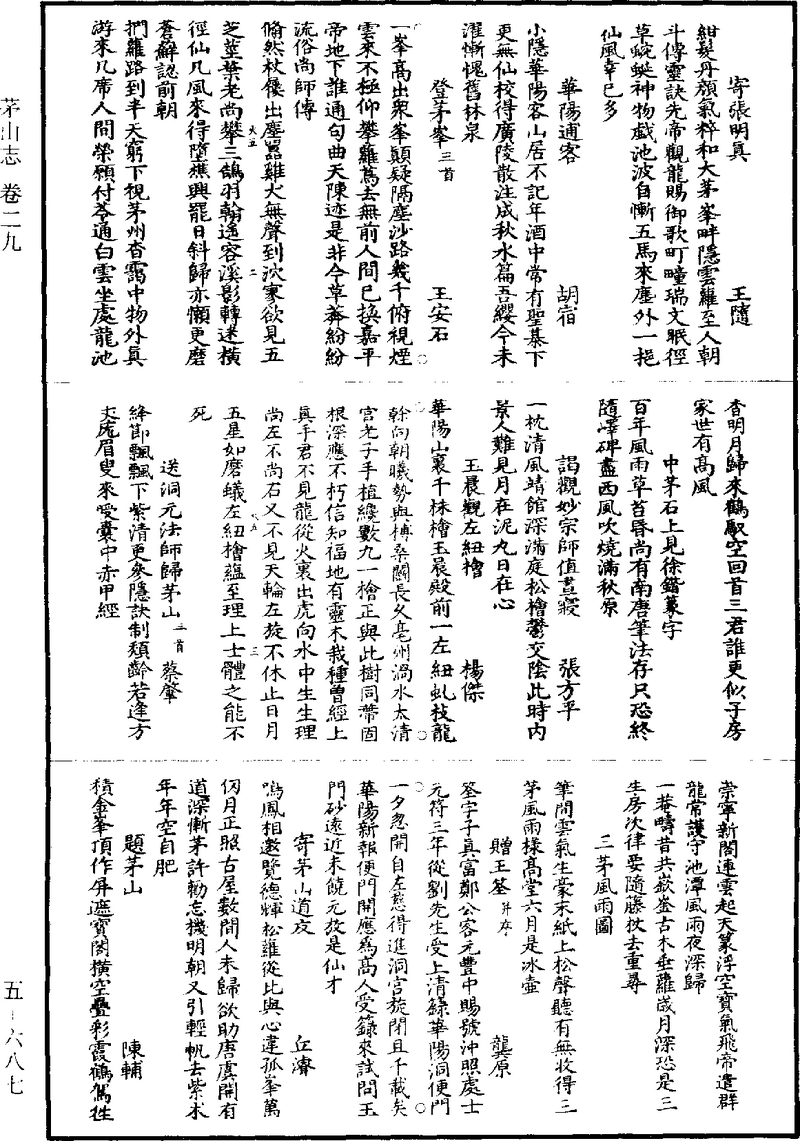 茅山志 卷二九
寄張明真 王隨
紺髮丹顏氣粹和大茅峯畔隱雲蘿至人朝
斗傳靈訣先帝觀龍賜御歌町疃瑞文眠徑
草蜿蜒神物戲池波自慚五馬來塵外一挹
仙風幸已多
華陽逋客 胡宿
小隱華陽客山居不記年酒中常有聖碁下
更無仙校得廣陵散注成秋水篇吾纓今未
濯慚愧舊林泉
登茅峯三首 王安石
一峯高出衆峯顛疑隔塵沙路幾千俯視煙
雲來不極仰攀蘿蔦去無前人間已換嘉平
帝地下誰通句曲天陳迹是非今草莽紛紛
流俗尚師傳
翛然杖屨出塵囂雞犬無聲到泬寥欲見五
芝莖葉老尚攀三鵠羽翰遙容溪影轉迷橫
徑仙几風來得墮樵興罷日斜歸亦懶更磨
蒼蘚認前朝
捫蘿路到半天窮下視茅州杳靄中物外真
游來几席人間榮願付苓通白雲坐處龍池
杳明月歸來鶴馭空回首三君誰更似子房
家世有高風
中茅石上見徐鍇篆字
百年風雨草苔昏尚有南唐筆法存只恐終
隨嶧碑盡西風吹燒滿秋原
謁觀妙宗師值晝寢 張方平
一枕清風靖館深滿庭松檜鬱交陰此時內
景人難見月在泥丸日在心
玉晨觀左紐檜 楊傑
華陽山裏千株檜玉晨殿前一左紐虬枝龍
榦向朝曦勢與榑桑鬪長久亳州渦水太清
宮老子手植纔數九一檜正與此樹同蔕固
根深應不朽信知福地有靈木栽種曾經上
真手君不見龍從火裏出虎向水中生生理
尚左不尚右又不見天輪左旋不休止日月
五星如磨蟻左紐檜蘊至理上士體之能不
死
送洞元法師歸茅山三首 蔡肇
絳節飄飄下紫清更參隱訣制頹齡若逢方
丈厖眉叟來受囊中赤甲經
崇寧新閣連雲起天篆浮空寶氣飛帝遣群
龍常護守池潭風雨夜深歸
一菴疇昔共嶔崟古木垂蘿歲月深恐是三
生房次律要隨藤杖去重尋
三茅風雨圖
筆間雲氣生蒙末紙上松聲聽有無收得三
茅風雨樣高堂六月是冰壺
贈王筌并序 龔原
筌字子真富鄭公客元豐中賜號沖照處士
元符三年從劉先生受上清籙華陽洞便門
一夕忽開自左慈得進洞宮旋閉且千載矣
華陽新報便門開應為高人受籙來試問玉
門砂遠近未饒元放是仙才
寄茅山道友 丘濬
鳴鳳相邀覽德輝松蘿從此與心違孤峯萬
仞月正照古屋數間人未歸欲助唐虞開有
道深慚茅許勸忘機明朝又引輕帆去紫朮
年年空自肥
題茅山 陳輔
積金峯頂作屏遮寶閣橫空疊彩霞鶴駕往
五－六八七